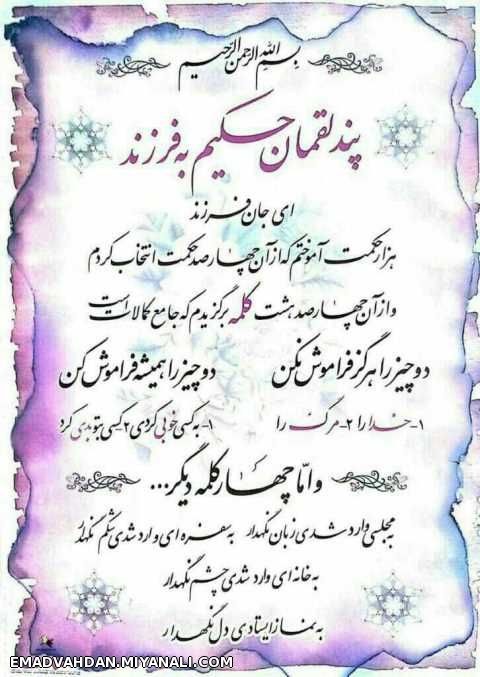 بسم الله الرحمن الرحیم
پند لقمان حکیم به فرزند
ای جان فرزند
هزار حکمت آموختم که از آن چهارصد حکمت انتخاب کردم
و از آن چهارصد هشت کلمه برگزیدم که جامع کمالات است
دو چیز را هرگز فراموش نکن
دو چیز را همیشه فراموش کن
۱- خدا را ۲- مرگ را
۱- به کسی خوبی کردی ۲ کسی بتو بدی کرد
و امّا چهار کلمه دیگر...
به مجلسی وارد شدی زبان نگهدار به سفره ای وارد شدی شکم نگهدار
به خانه ای وارد شدی چشم نگهدار
به نماز ایستادی دل نگهدار
EMADVAHDAN.MIYANALI.COM